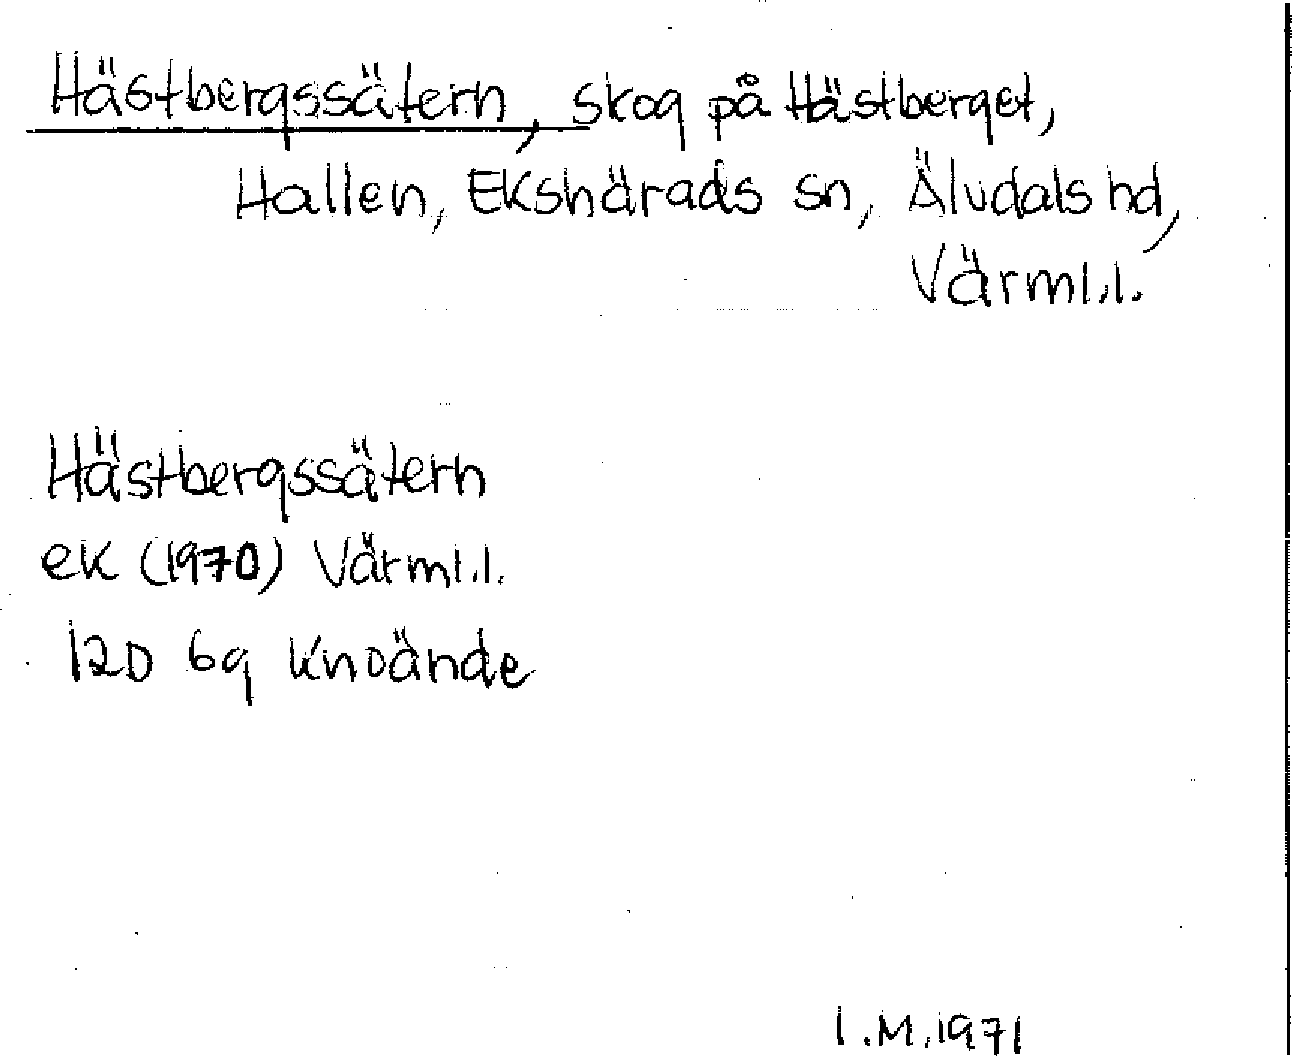 Hästbergssätern, skog på Hästberget,
Hallen, Ekshärads sn, Älvdals hd,
Värml.l.
Hästbergssätern
ek (1970) Värml.l.
12D 6g Knoände
I.M.1971